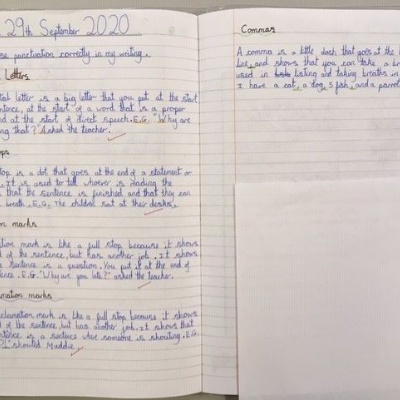 29th September 2020
punctuation correctly in my writing.
Letters
letter is a big letter that you put at the start
at the start of a word that is a proper
at the start of direct speech. E.G. "Why are
that?" Asked the teacher.
is a dot that goes at the end of a statement or
It is used to tell whoever is reading the
that the sentence is finished and that they can
breath. E.G. The children sat at their desks.
marks
mark is like a full stop because it shows
of the sentence, but has another job. It shows
sentence is a question. You put it at the end of
E.G. "Why are you late?" asked the teacher.
marks
mark is like a full stop because it shows
of the sentence but has another job. It shows that
is a sentence where someone is shouting. E.G.
shouted Maddie.
Commas
A comma is a little dash that goes at the
line and shows that you can take a
used in listing and taking breaths in
I have a cat, a dog, 5 fish, and a parrot